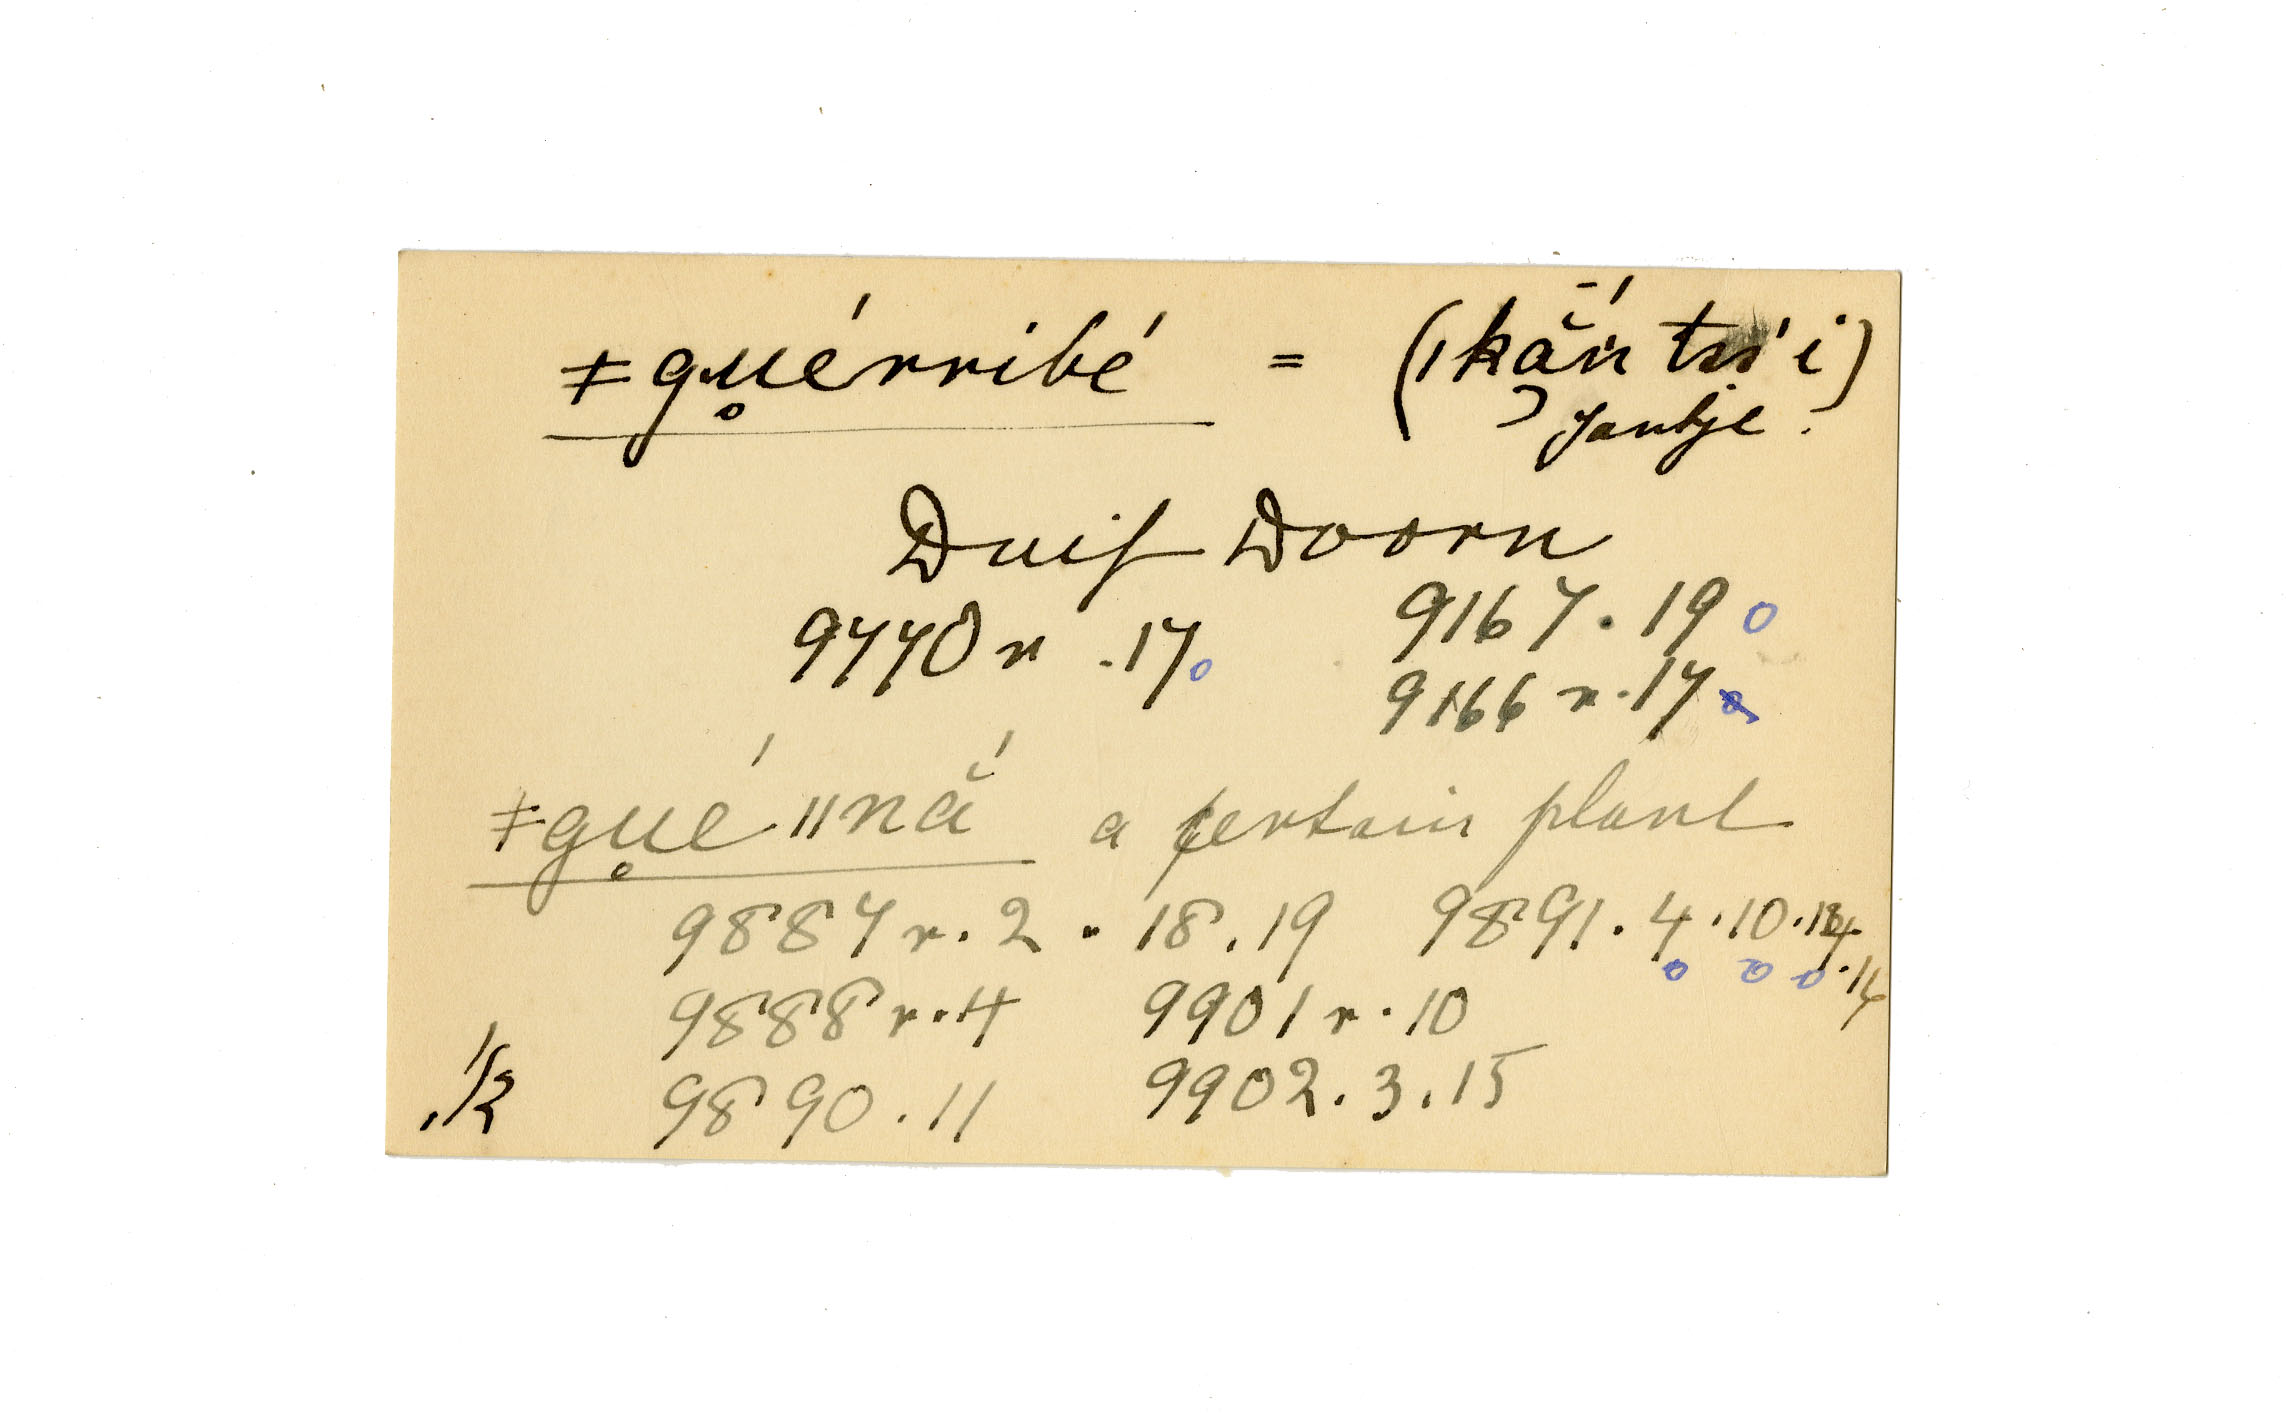 ǂgu̥érribé = (ǀkā̆́ntu'i)
Jantje.
Duif Doorn
9770 r .17 o 9167.19 o
9166 r.17
ǂgu̥é ǁnắ a certain plant
9887 r. 2 . 18.19 9891.4.10.14
o o o .16
9888 r.4 9901 r.10
9890.11 9902.3.15